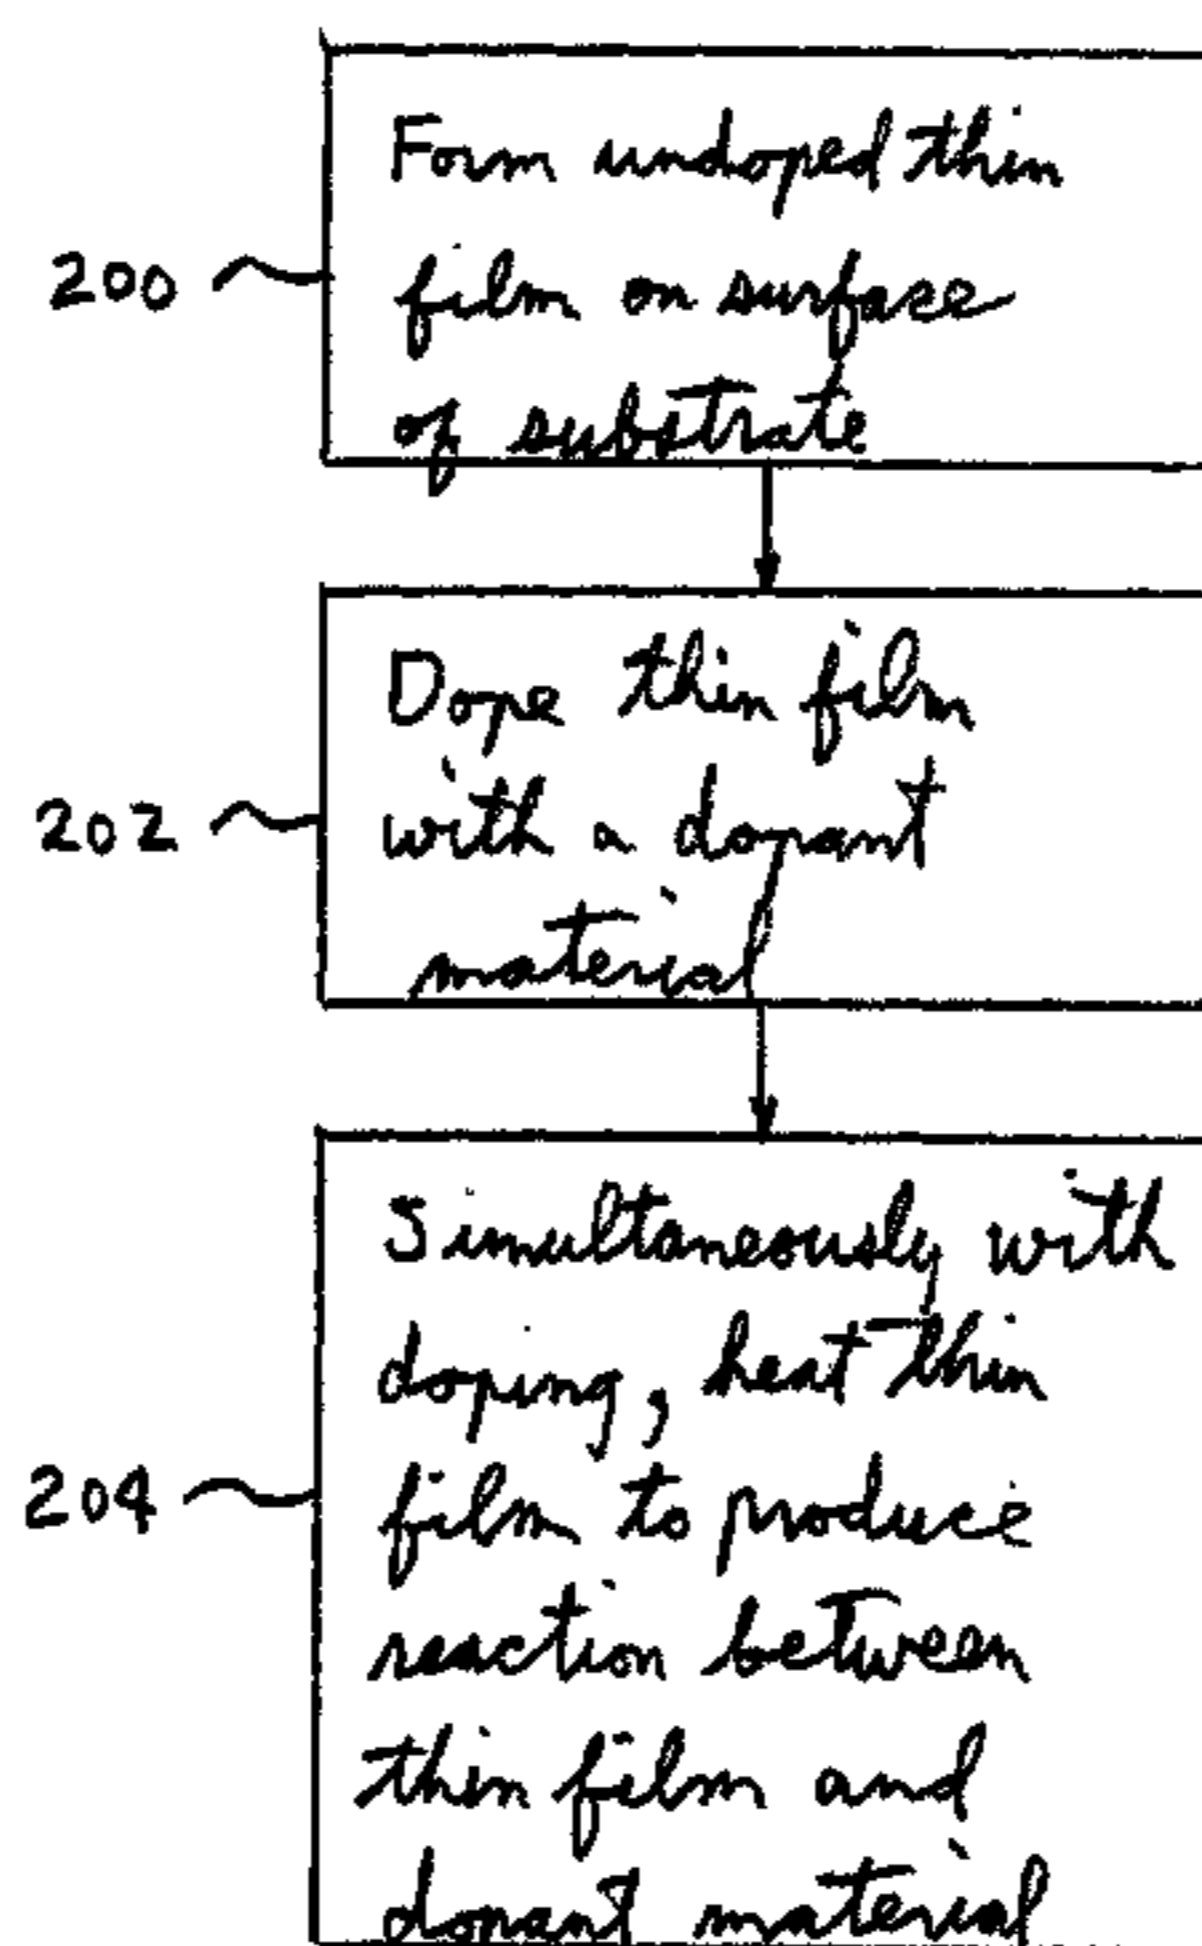 Form undoped thin
200 film on surface
of substrate
Dope thin film
202 with a dopant
material
Simultaneously with
doping, heat thin
204 film to produce
reaction between
thin film and
dopant material